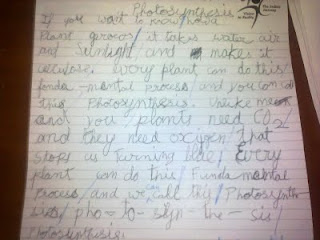 Photosynthesis
If you want to know/how a
plant grows/it takes water air
and Sunlight/and makes it
celulose. Every plant can do this/
funda-mental process and you can call
this Photosynthesis. Unlike me
and you/plants need CO2/
and they need oxygen/that
stops us turning blue/Every
plant can do this/Funda mental
Process/and we can call this/Photosynth
esis/pho-to-syn-the-sis/
Photosynthesis.